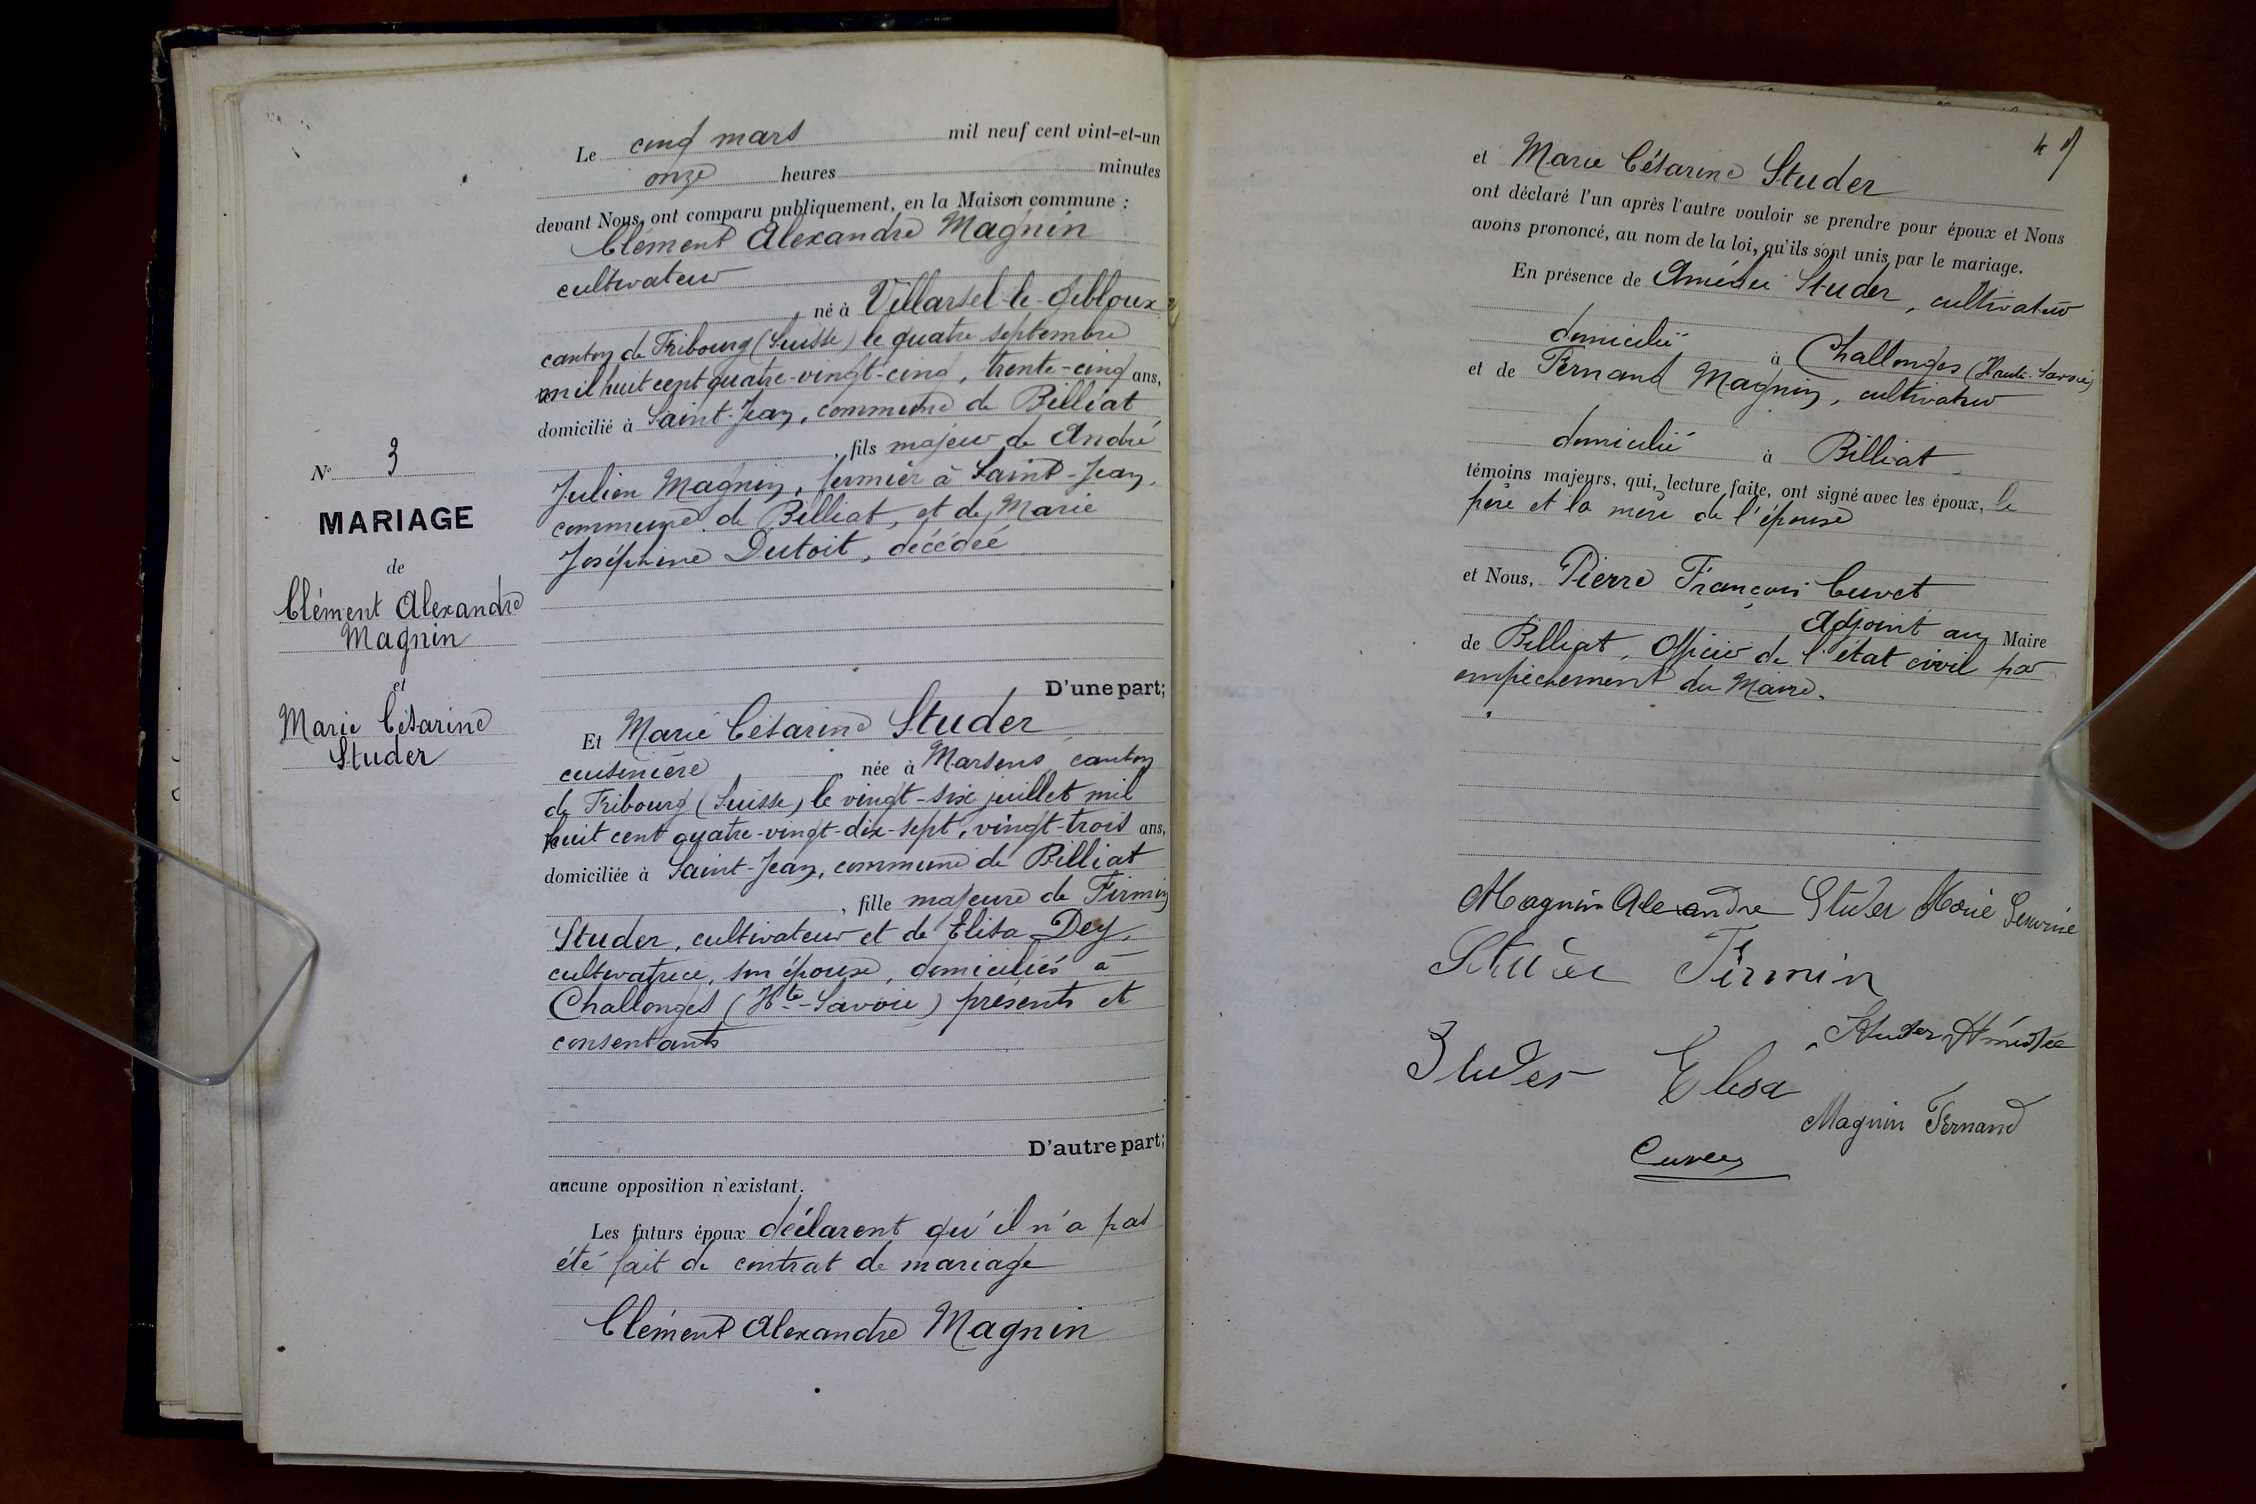 Le cinq mars mil neuf cent vint-et-un
onze heures minutes
devant Nous, ont comparu publiquement, en la Maison commune :
Clément Alexandre Magnin
cultivateur
, né à Villarsel-le-Gibloux
canton de Fribourg (Suisse) le quatre septembre
mil huit cent quatre-vingt-cinq, trente-cinq ans,
domicilié à Saint-Jean, commune de Billiat
, fils majeur de André
Julien Magnin, fermier à Saint-Jean,
commune de Billiat, et de Marie
Joséphine Dutoit, décédée
D'une part;
Et Marie Césarine Studer
cuisinière, née à Marsens canton
de Fribourg (Suisse) le vingt-six juillet mil
huit cent quatre-vingt-dix-sept, vingt-trois ans,
domiciliée à Saint-Jean, commune de Billiat
, fille majeure de Firmin
Studer, cultivateur et de Elisa Dey,
cultivatrice, son épouse, domiciliés à
Challonges (Hte-Savoie) présents et
consentants
D'autre part;
aucune opposition n'existant.
Les futurs époux déclarent qu'il n'a pas
été fait de contrat de mariage
Clément Alexandre Magnin
N° 3
MARIAGE
de
Clément Alexandre
Magnin
et
Marie Césarine
Studer
et Marie Césarine Studer
ont déclaré l'un après l'autre vouloir se prendre pour époux et Nous
avons prononcé, au nom de la loi, qu'ils sont unis par le mariage.
En présence de Amédée Studer, cultivateur
domicilié à Challonges (Haute-Savoie)
et de Fernand Magnin, cultivateur
domicilié à Billiat
témoins majeurs, qui, lecture faite, ont signé avec les époux, le
père et la mère de l'épouse
et Nous, Pierre François Cuvet
Adjoint au Maire
de Billiat, Officier de l'état civil par
empêchement du Maire.
Magnin Alexandre Studer Marie
Studer Firmin
Studer Amédée
Studer Elisa
Magnin Fernand